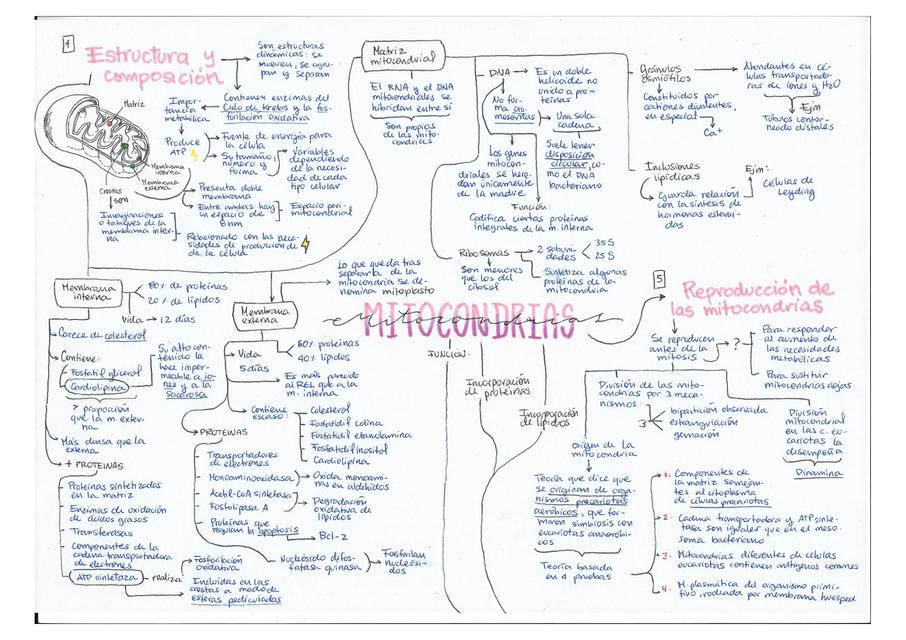 1
Estructura y
composición
Son estructuras
dinámicas: se
mueven, se agru-
pan y separan
Contienen enzimas del
Ciclo de Krebs y la fos-
forilación oxidativa
Impor-
tancia
metabólica
Produce
ATP
Fuente de energía para
la célula
Su tamaño,
número y
forma
Variables
dependiendo
de la necesi-
dad de cada
tipo celular
Matriz
Membrana
interna
Membrana
externa
Crestas
son
Invaginaciones
o tabiques de la
membrana inter-
na
Presenta doble
membrana
Entre ambas hay
un espacio de
6nm
Espacio peri-
mitocondrial
Relacionado con las nece-
sidades de producción de
de la célula
Matriz
mitocondrial
El RNA y el DNA
mitocondriales se
hibridan entre sí
Son propias
de las mito-
condrias
DNA
Es un doble
helicoide no
unido a pro-
teínas
No for-
ma cro-
mosomas
Una sola
cadena
Suele tener
disposición
circular, co-
mo el DNA
bacteriano
Los genes
mitocon-
driales se here-
dan únicamente
de la madre
Función:
Codifica ciertas proteínas
integrales de la m. interna
Ribosomas
2 subuni-
dades
35 S
25 S
Son menores
que los del
citosol
Sintetiza algunas
proteínas de la
mitocondria
Gránulos
osmiófilos
Abundantes en cé-
lulas transportado-
ras de iones y H2O
Ejm
Túbulos contor-
neado distales
Constituidos por
cationes divalentes,
en especial
Ca+
Inclusiones
lipídicas
Guarda relación
con la síntesis de
hormonas esteroi-
das
Ejm:
Células de
Leyding
Membrana
interna
80% de proteínas
20% de lípidos
Vida → 12 días
Carece de colesterol
Contiene:
Fosfatil glicerol
Cardiolipina
Su alto con-
tenido la
hace imper-
meable a io-
nes y a la
sacarosa
> proporción
que la m. exter-
na
Más densa que la
externa
+ PROTEÍNAS
Proteínas sintetizadas
en la matriz
Enzimas de oxidación
de ácidos grasos
Transferasas
Componentes de la
cadena transportadora
de electrones
ATP sintetaza
realiza
Fosforilación
oxidativa
Incluidas en las
crestas a modo de
esferas pediculadas
Lo que queda tras
separarla de la
mitocondria se de-
nomina mitoplasto
Membrana
externa
Vida
5 días
60% proteínas
40% lípidos
Es más parecido
al REL que a la
m. interna
Contiene
escaso:
Colesterol
Fosfatidil colina
Fosfatidil etanolamina
Fosfatidil inositol
Cardiolipina
PROTEÍNAS
Transportadores
de electrones
Monoaminooxidasa
Oxida monoami-
nas en aldehidos
Acetil-CoA sintetasa
Fosfolipasa A
Degradación
oxidativa de
lípidos
Proteínas que
regulan la apoptosis
Bcl-2
Nucleósido difos-
fatasa quinasa
Fosforilan
nucleósi-
dos
MITOCONDRIAS
Mitocondrias
FUNCIÓN:
Incorporación
de proteínas
Incorporación
de lípidos
5
Reproducción de
las mitocondrias
Se reproducen
antes de la
mitosis
?
Para responder
al aumento de
las necesidades
metabólicas
Para sustituir
mitocondrias viejas
División de las mito-
condrias por 3 meca-
nismos:
3
bipartición observada
estrangulación
gemación
División
mitocondrial
en las c. eu-
cariotas la
desempeña
Dinamina
Origen de la
mitocondria
Teoría que dice que
se originan de orga-
nismos procariotas
aeróbicos, que for-
maron simbiosis con
eucariotas anaeróbi-
cos
Teoría basada
en 4 pruebas
1. Componentes de
la matriz semejan-
tes al citoplasma
de células procariotas
2. Cadena transportadora y ATP sinte-
tasa son iguales que en el meso-
soma bacteriano
3. Mitocondrias diferentes de células
eucariotas contienen antígenos comunes
4. M. plasmática del organismo primi-
tivo, rodeada por membrana huesped